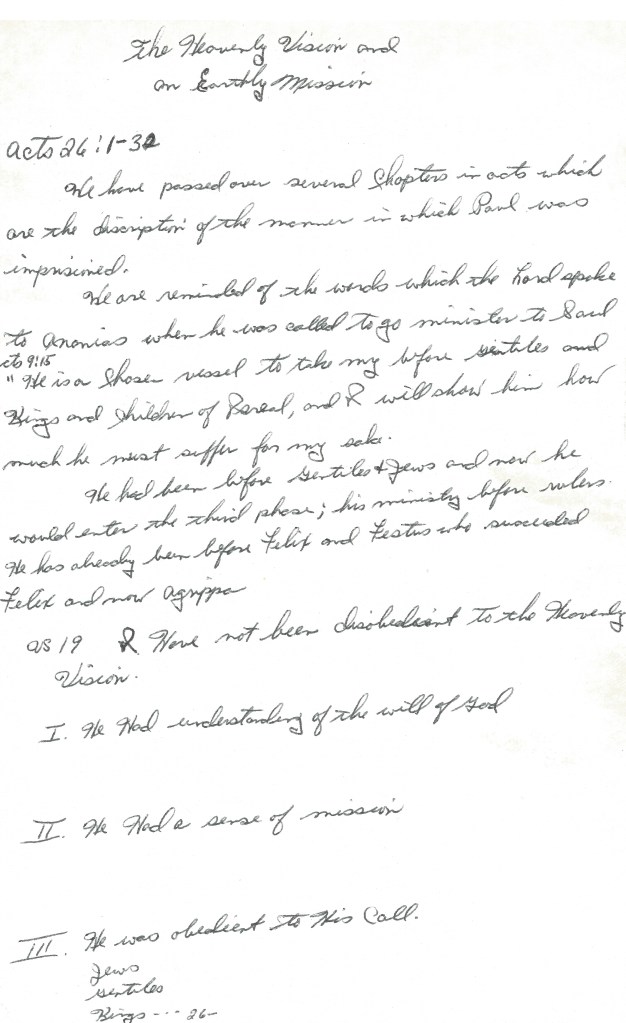 The Heavenly Vision and
an Earthly Mission
Acts 26:1-32
We have passed over several Chapters in acts which
are the discription of the manner in which Paul was
imprisioned.
We are reminded of the words which the Lord spoke
to Ananias when he was called to go minister to Saul
cts 9:15
"He is a Chosen vessel to take my before Gentiles and
Kings and Children of Isreal, and I will show him how
much he must suffer for my sake.
He had been before Gentiles & Jews and now he
would enter the third phase; his ministry before rulers.
He has already been before Felix and Festus who succeeded
Felix and now Agrippa
vs 19 I Have not been disobedient to the Heavenly
Vision.
I. He Had understanding of the will of God
II. He Had a sense of mission
III. He was obedient to His Call.
Jews
Gentiles
Kings --- 26-